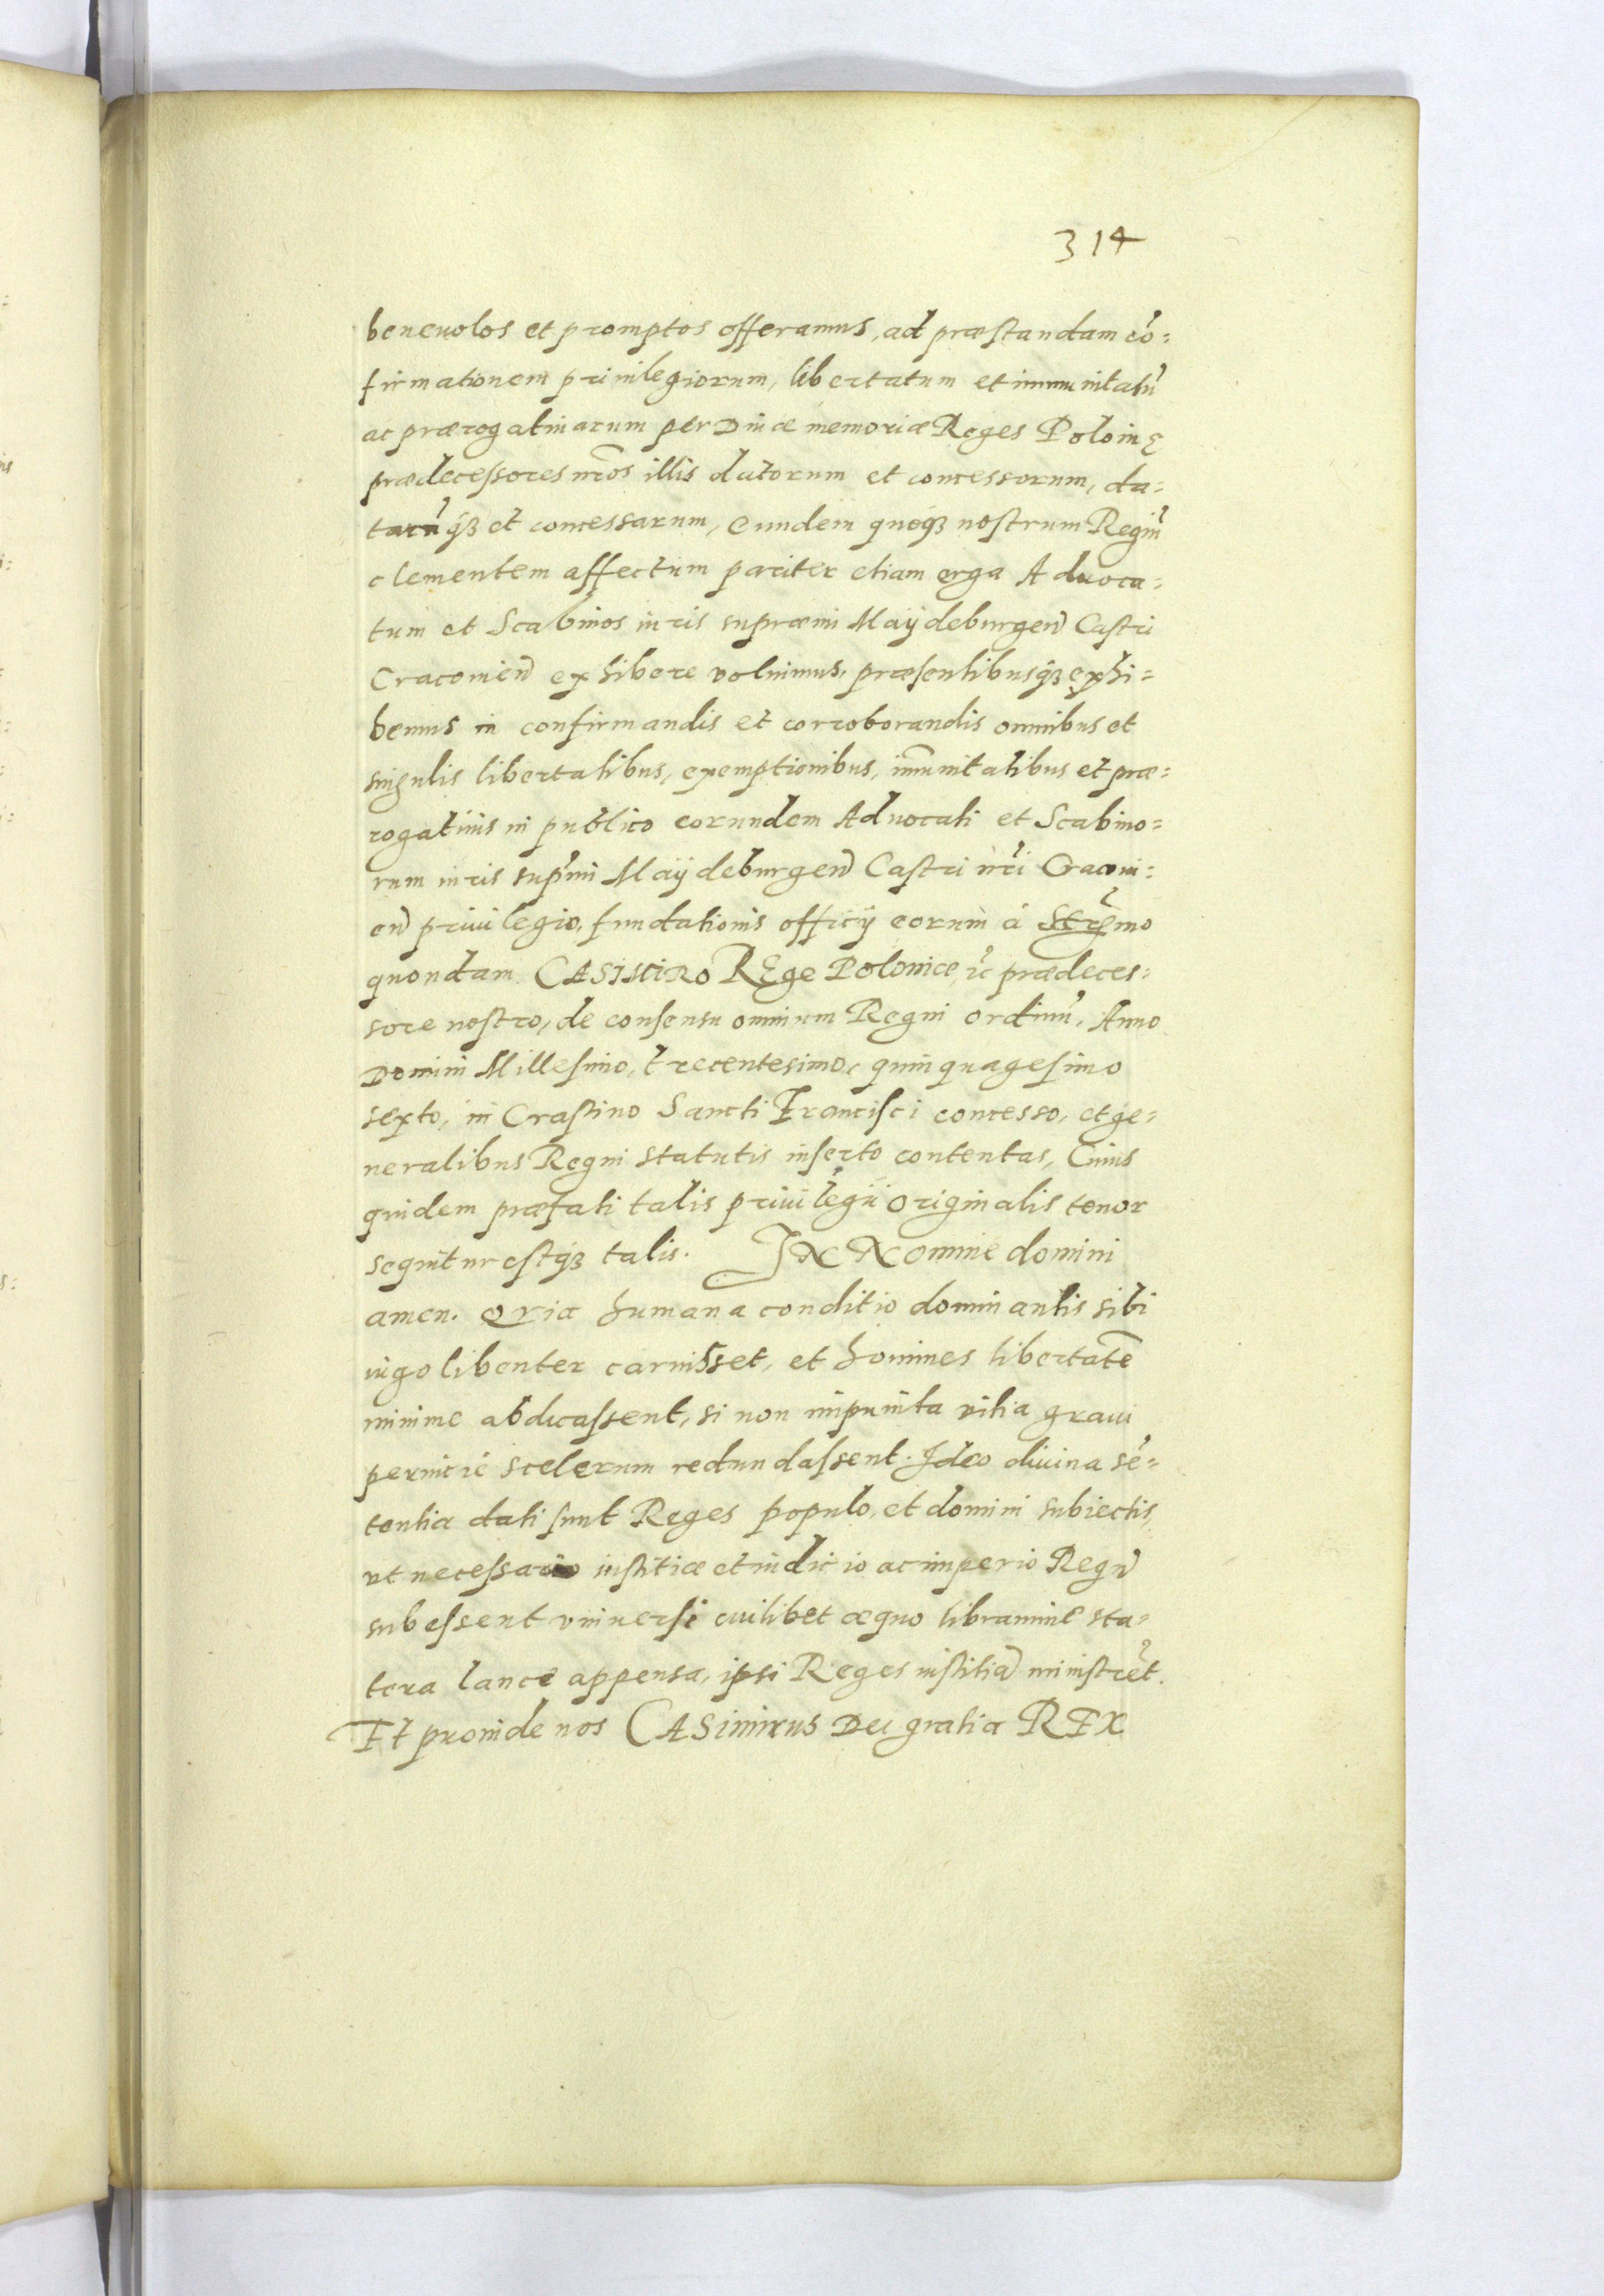 314
beneuolos et promptos offeramus, ad præstandam cõ=
firmationem priuilegiorum, libertatum et immunitatũ
ac prærogatiuarum per Diuæ memoriæ Reges Polonię
prædecessores nr̃os illis datorum et concessorum, da=
tarũq₃ et concessarum, eundem quoq₃ nostrum Regiũ
clementem affectum pariter etiam erga Aduoca=
tum et Scabinos iuris supræmi Maÿdeburgeñ Castri
Cracouieñ exhibere voluimus, præsentibusq₃ exhi=
bemus in confirmandis et corroborandis omnibus et
singulis libertatibus, exemptionibus, im̃unitatibus et præ=
rogatiuis in publico eorundem Aduocati et Scabino=
rum iuris sup̃mi Maÿdeburgeñ Castri nr̃i Cracoui=
eñ priuilegio, fundationis officÿ eorum à Ser̃emo
quondam CASIMIRO REge Poloniæ, r̃c prædeces=
sore nostro, de consensu omnium Regni ordinũ, Anno
Domini Millesimo, trecentesimo, quinquagesimo
sexto, in Crastino Sancti Francisci concesso, et ge=
neralibus Regni statutis inserto contentas, Cuius
quidem præfati talis priuilegii originalis tenor
sequitur estq₃ talis. IN Nomine domini
amen. QVia humana conditio dominantis sibi
iugo libenter caruisset, et homines libertatẽ
minime abdicassent, si non impunita vitia graui
pernicie scelerum redundassent. Ideo diuina sẽ=
tentia dati sunt Reges populo, et domini subiectis,
vt necessario iustitiæ et iudicio ac imperio Regũ
subessent vniuersi cuilibet æquo libramine sta=
tera lance appensa, ipsi Reges iustitiã ministrẽt.
Et proinde nos CASimirus Dei gratia REX